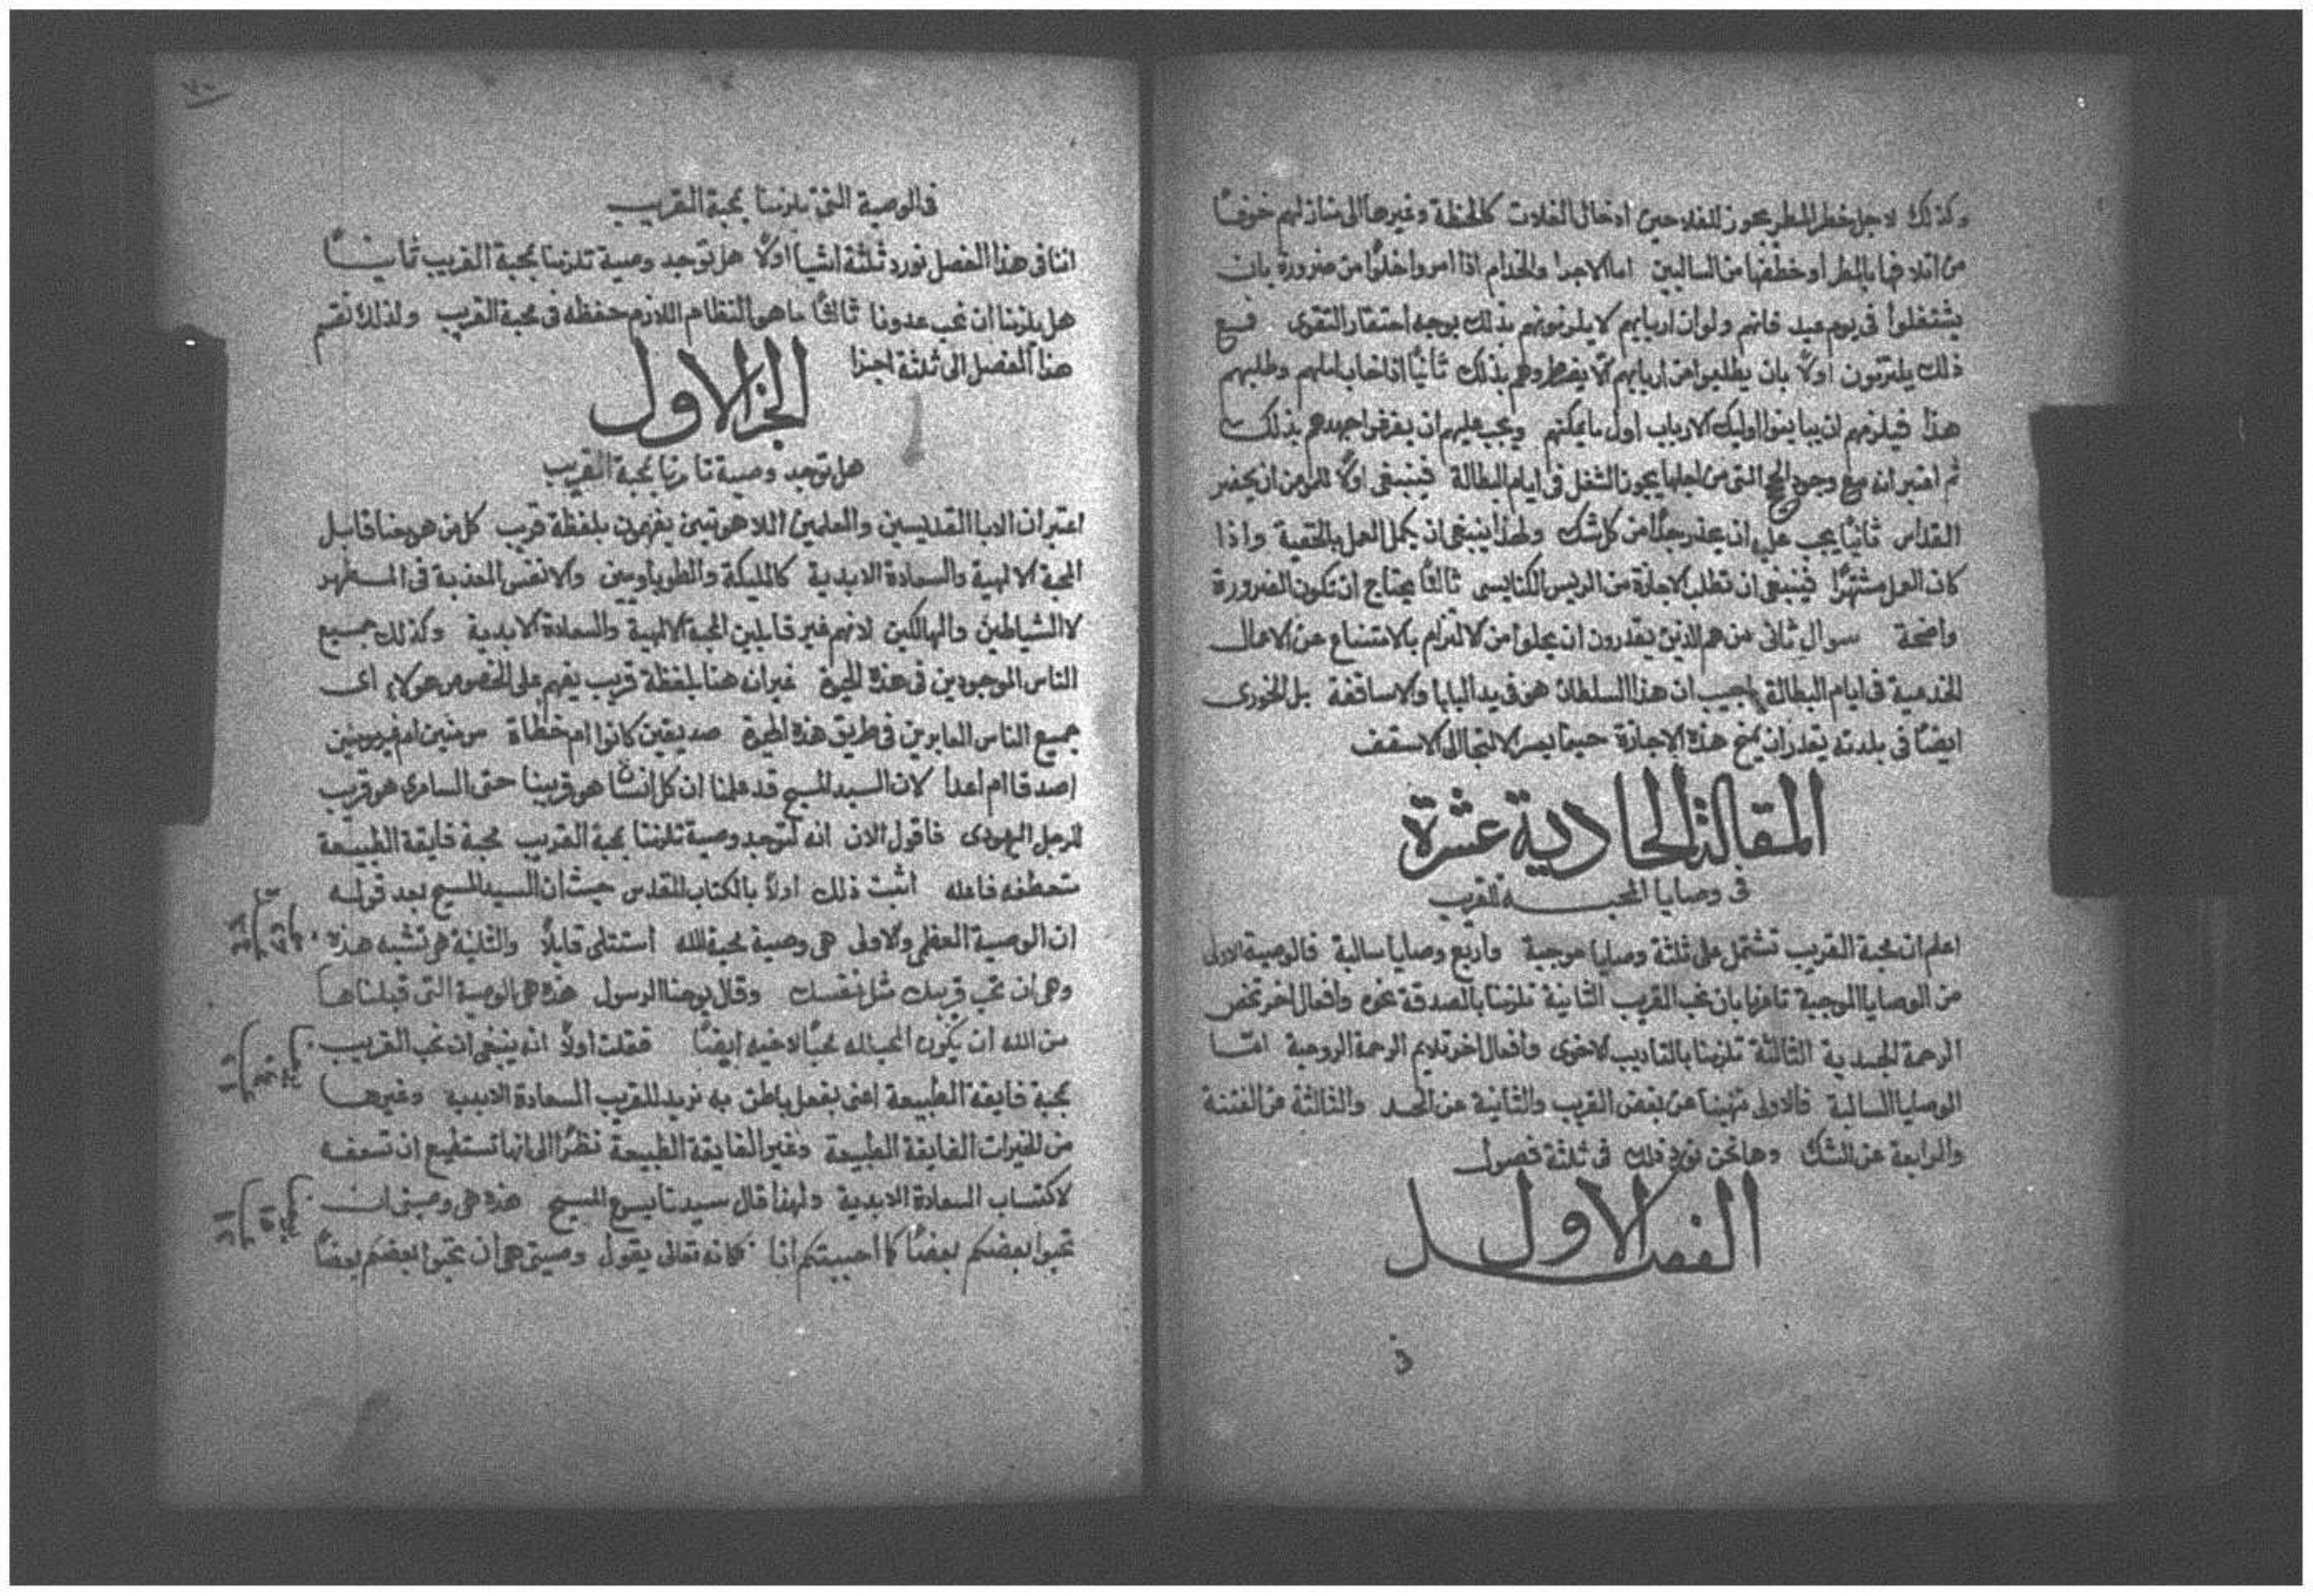 وكذلك لاجل خطر المطر يجوز للفلاحين ادخال الغلات كالحنظة وغيرها الى منازلهم خوفًا
من اتلافها بالمطر او خطفها من السالبين اما الاجرا والخدام اذا امروا خلوًا من ضرورة بان
يشتغلوا فى يوم عيد فانهم ولو ان اربابهم لا يلزمونهم بذلك بوجه احتقار التقوى فمع
ذلك يلتزمون اولًا بان يطلبوا من اربابهم الا يضطروهم بذلك ثانيًا اذا خاب املهم وطلبهم
هذا فيلزمهم ان يباينوا اوليك الارباب اول ما يمكنهم ويجب عليهم ان يفرغوا جهدهم بذلك
ثم اعتبر انه مع وجود الحجج التى من اجلها يجوز الشغل فى ايام البطالة فينبغى اولًا للمومن ان يحضر
القداس ثانيًا يجب عليه ان يحذر جدًا من كل شك ولهذا ينبغى ان يكمل العمل بالخفية واذا
كان العمل مشتهرًا فينبغى ان تطلب الاجازة من الريس الكنايسى ثالثًا يحتاج ان تكون الضرورة
واضحة سوال ثانى من هم الذين يقدرون ان يحلوا من الالتزام بالامتناع عن الاعمال
الخدمية فى ايام البطالة اجيب ان هذا السلطان هو فى يد البابا والاساقفة بل الخورى
ايضًا فى بلدته يقدر ان يمنح هذه الاجازة حينما يعسر الالتجا الى الاسقف
المقالة الحادية عشرة
فى وصايا المحبة للقريب
اعلم ان محبة القريب تشتمل على ثلثة وصايا موجبة واربع وصايا سالبة فالوصية الاولى
من الوصايا الموجبة تامرنا بان نحب القريب الثانية تلزمنا بالصدقة نحوه وافعال اخر تخص
الرحمة الجسدية الثالثة تلزمنا بالتاديب الاخوى وافعال اخر تلايم الرحمة الروحية امّا
الوصايا السالبة فالاولى تنهينا عن بغض القريب والثانية عن الحسد والثالثة عن الفتنة
والرابعة عن الشك وها نحن نورد ذلك فى ثلثة فصول
الفصل الاول
فى الوصية التى تلزمنا بمحبة القريب
اننا فى هذا الفصل نورد ثلثة اشيا اولًا هل توجد وصية تلزمنا بمحبة القريب ثانيًا
هل يلزمنا ان نحب عدونا ثالثًا ما هو النظام اللازم حفظه فى محبة القريب ولذلك نقسم
هذا الفصل الى ثلثة اجزا
الجز الاول
هل توجد وصية تامرنا بمحبة القريب
اعتبر ان الابا القديسين والمعلمين اللاهوتيين يفهمون بلفظة قريب كل من هو معنا قابل
المحبة الالهية والسعادة الابدية كالمليكة والطوباويين والانفس المعذبة فى المطهر
لا الشياطين والهالكين لانهم غير قابلين المحبة الالهية والسعادة الابدية وكذلك جميع
الناس الموجودين فى هذه الحيوة غير ان هنا بلفظة قريب يفهم على الخصوص هولاء اى
جميع الناس العابرين فى طريق هذه الحيوة صديقين كانوا ام خطاة مومنين ام غير مومنين
اصدقا ام اعدا لان السيد المسيح قد علمنا ان كل انسان هو قريبنا حتى السامرى هو قريب
للرجل اليهودى فاقول الان انه لتوجد وصية تلزمنا بمحبة القريب محبة فايقة الطبيعة
متعطفه فاعله اثبت ذلك اولًا بالكتاب المقدس حيث ان السيد المسيح بعد قوله
ان الوصية العظمى والاولى هى وصية محبة الله استتلى قايلًا والثانية هى تشبه هذه
وهى ان تحب قريبك مثل نفسك وقال يوحنا الرسول هذه هى الوصية التى قبلناها
من الله ان يكون المحب لله محبًا لاخيه ايضًا فقلت اولًا انه ينبغى ان نحب القريب
محبة فايقة الطبيعة اعنى بفعل باطن به نريد للقريب السعادة الابدية وغيرها
من الخيرات الفايقة الطبيعة وغير الفايقة الطبيعة نظرًا الى انها تستطيع ان تسعفه
لاكتساب السعادة الابدية ولهذا قال سيدنا يسوع المسيح هذه هى وصيتى ان
تحبوا بعضكم بعضًا كما احببتكم انا فكانه تعالى يقول وصيتى هى ان تحبوا بعضكم بعضًا